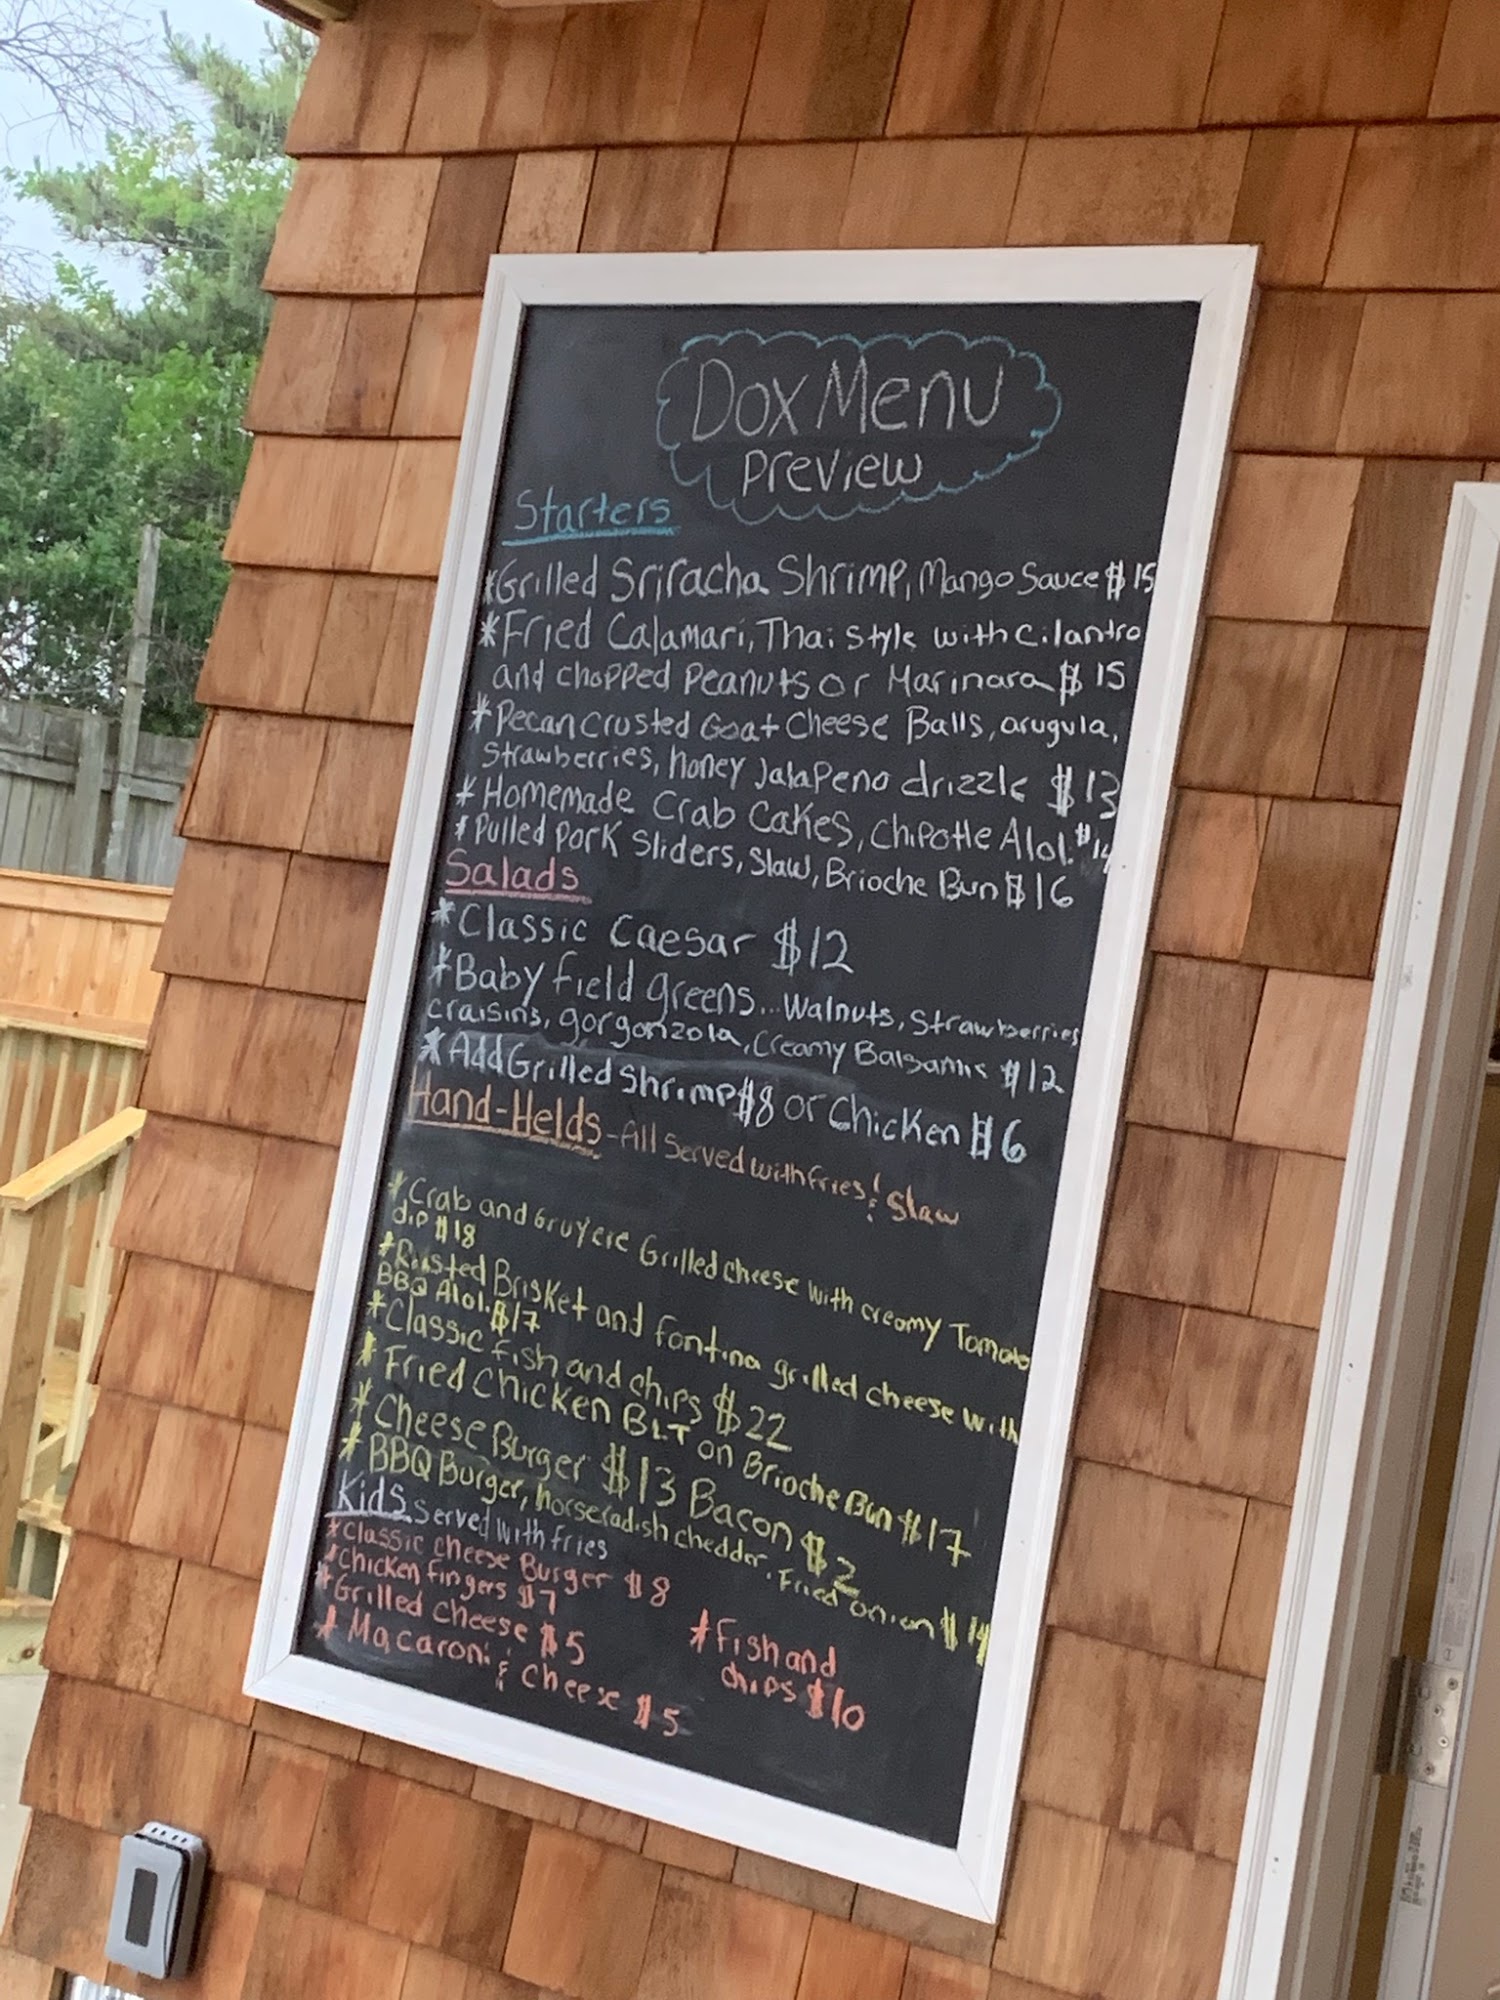 Dox Menu
Preview
Starters
*Grilled Sriracha Shrimp, Mango Sauce $15
*Fried Calamari, Thai Style with Cilantro
and chopped Peanuts or Marinara $15
*Pecan Crusted Goat Cheese Balls, arugula,
Strawberries, honey Jalapeno drizzle $13
*Homemade Crab Cakes, Chipotle Aloi. $14
*Pulled Pork Sliders, Slaw, Brioche Bun $16
Salads
*Classic Caesar $12
*Baby field greens... Walnuts, Strawberries
craisins, gorgonzola, Creamy Balsamic $12
*Add Grilled Shrimp $8 or Chicken $6
Hand-Helds - All Served with fries & Slaw
*Crab and Gruyere Grilled Cheese with creamy Tomato
dip $18
*Roasted Brisket and fontina grilled cheese with
BBQ Aloi. $17
*Classic fish and chips $22
*Fried Chicken BLT on Brioche Bun $17
*Cheese Burger $13 Bacon $2
*BBQ Burger, horseradish chedder, Fried onion $14
Kids Served with fries
*Classic cheese Burger $8
*Chicken fingers $7
*Grilled cheese $5
*Macaroni & Cheese $5
*Fish and
chips $10